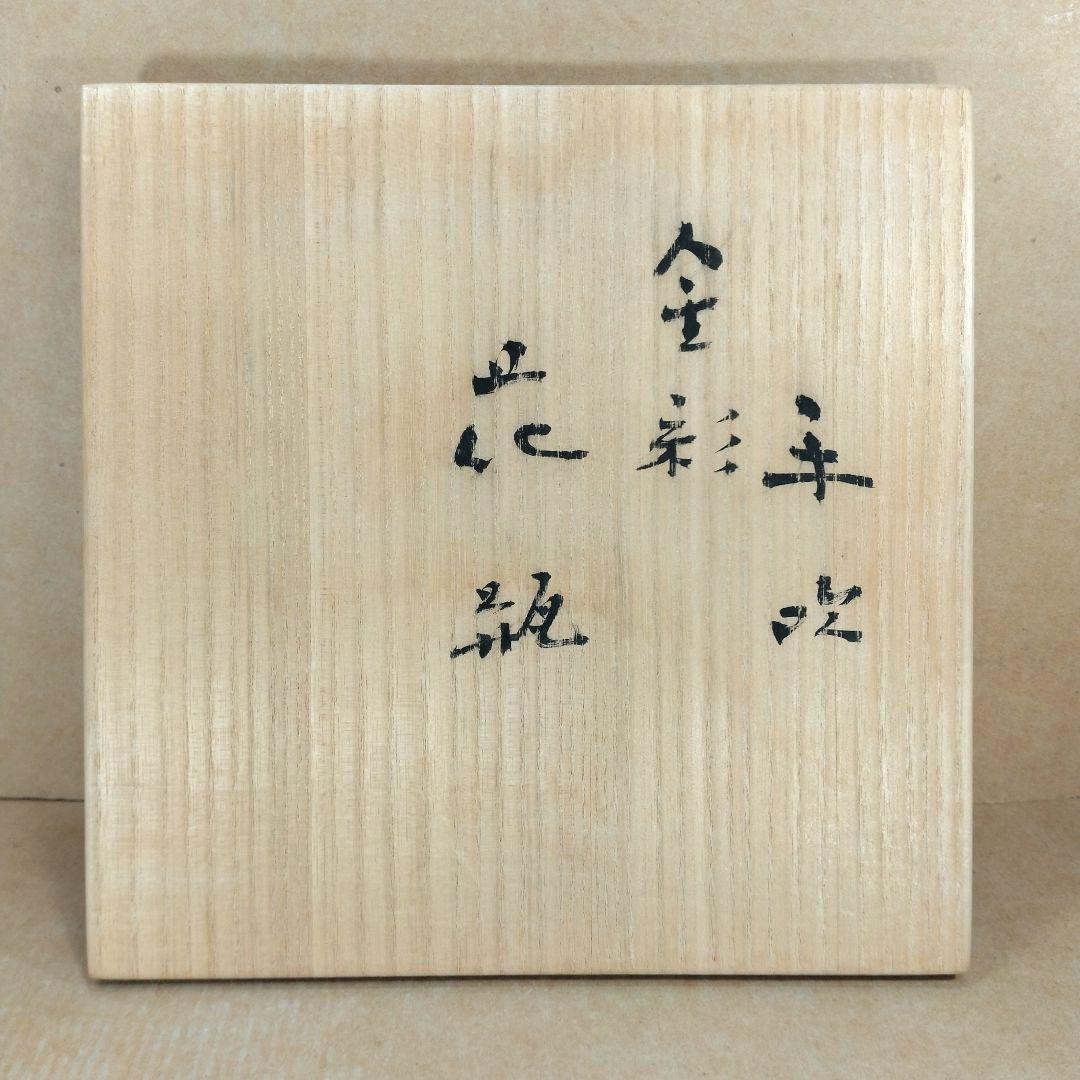 手吹
金彩
花瓶